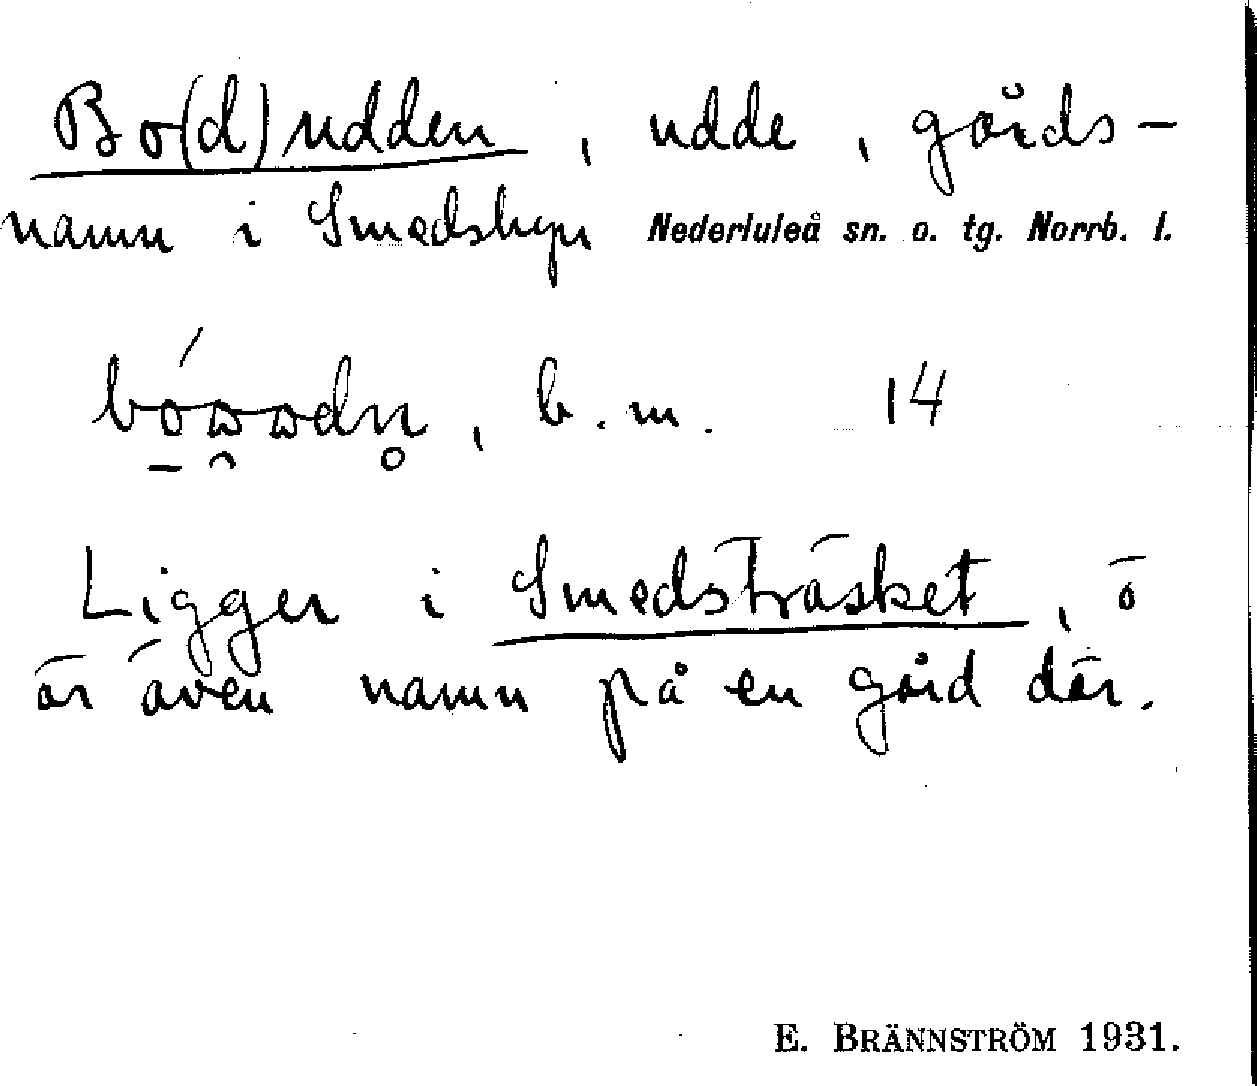 Bo(d)udden, udde, gårds-
namn i Smedsbyn Nederluleå sn. o. tg. Norrb. l.
b. m. 14
Ligger i Smedsträsket, ö
är även namn på en gård där.
E. BRÄNNSTRÖM 1931.